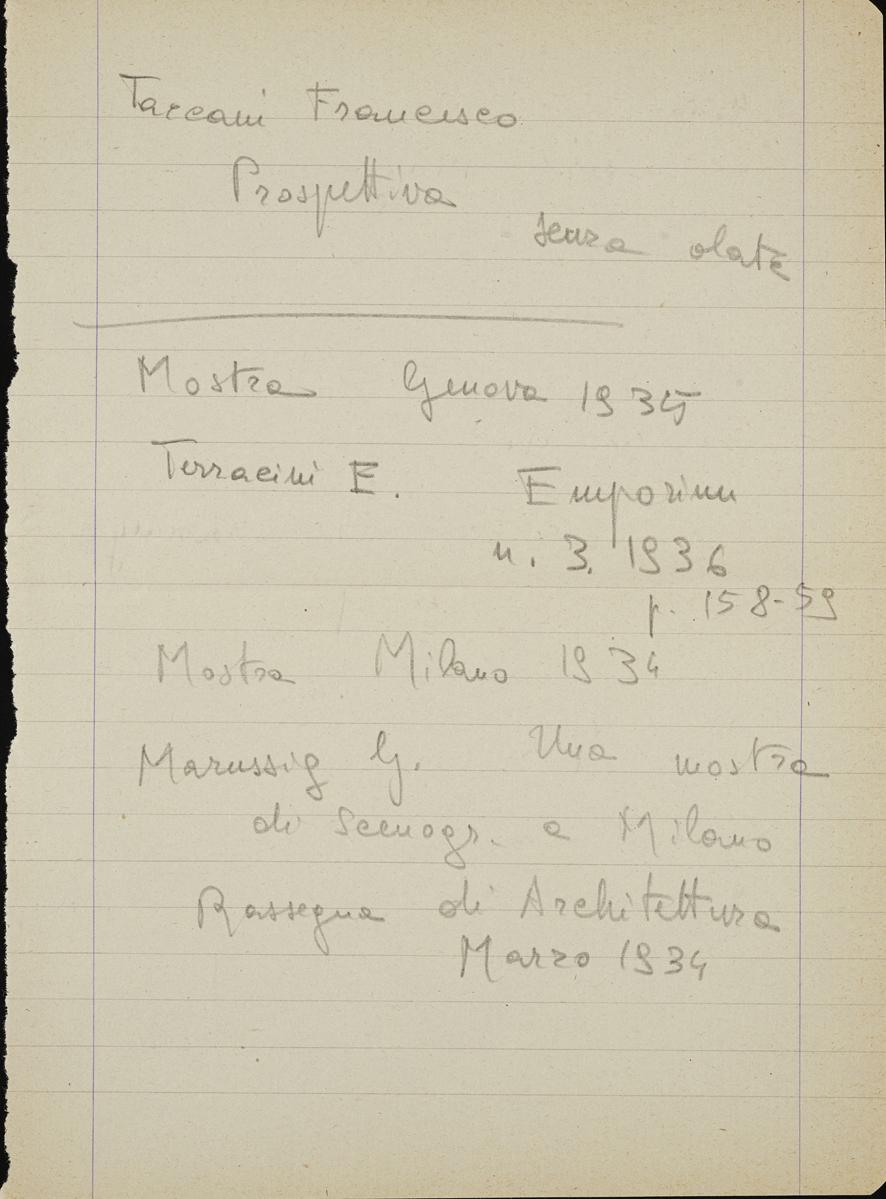 Taccani Francesco
Prospettiva
senza date
Mostra Genova 1935
Terracini E. Emporium
n. 3. 1936
p. 158-59
Mostra Milano 1934
Marussig G. Una mostra
di Scenogr. a Milano
Rassegna di Architettura
Marzo 1934